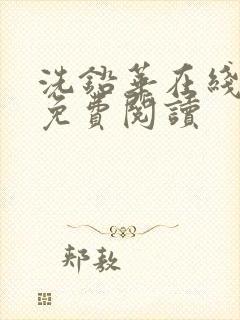 洗鉛華在綫
免費閱讀
郟敖